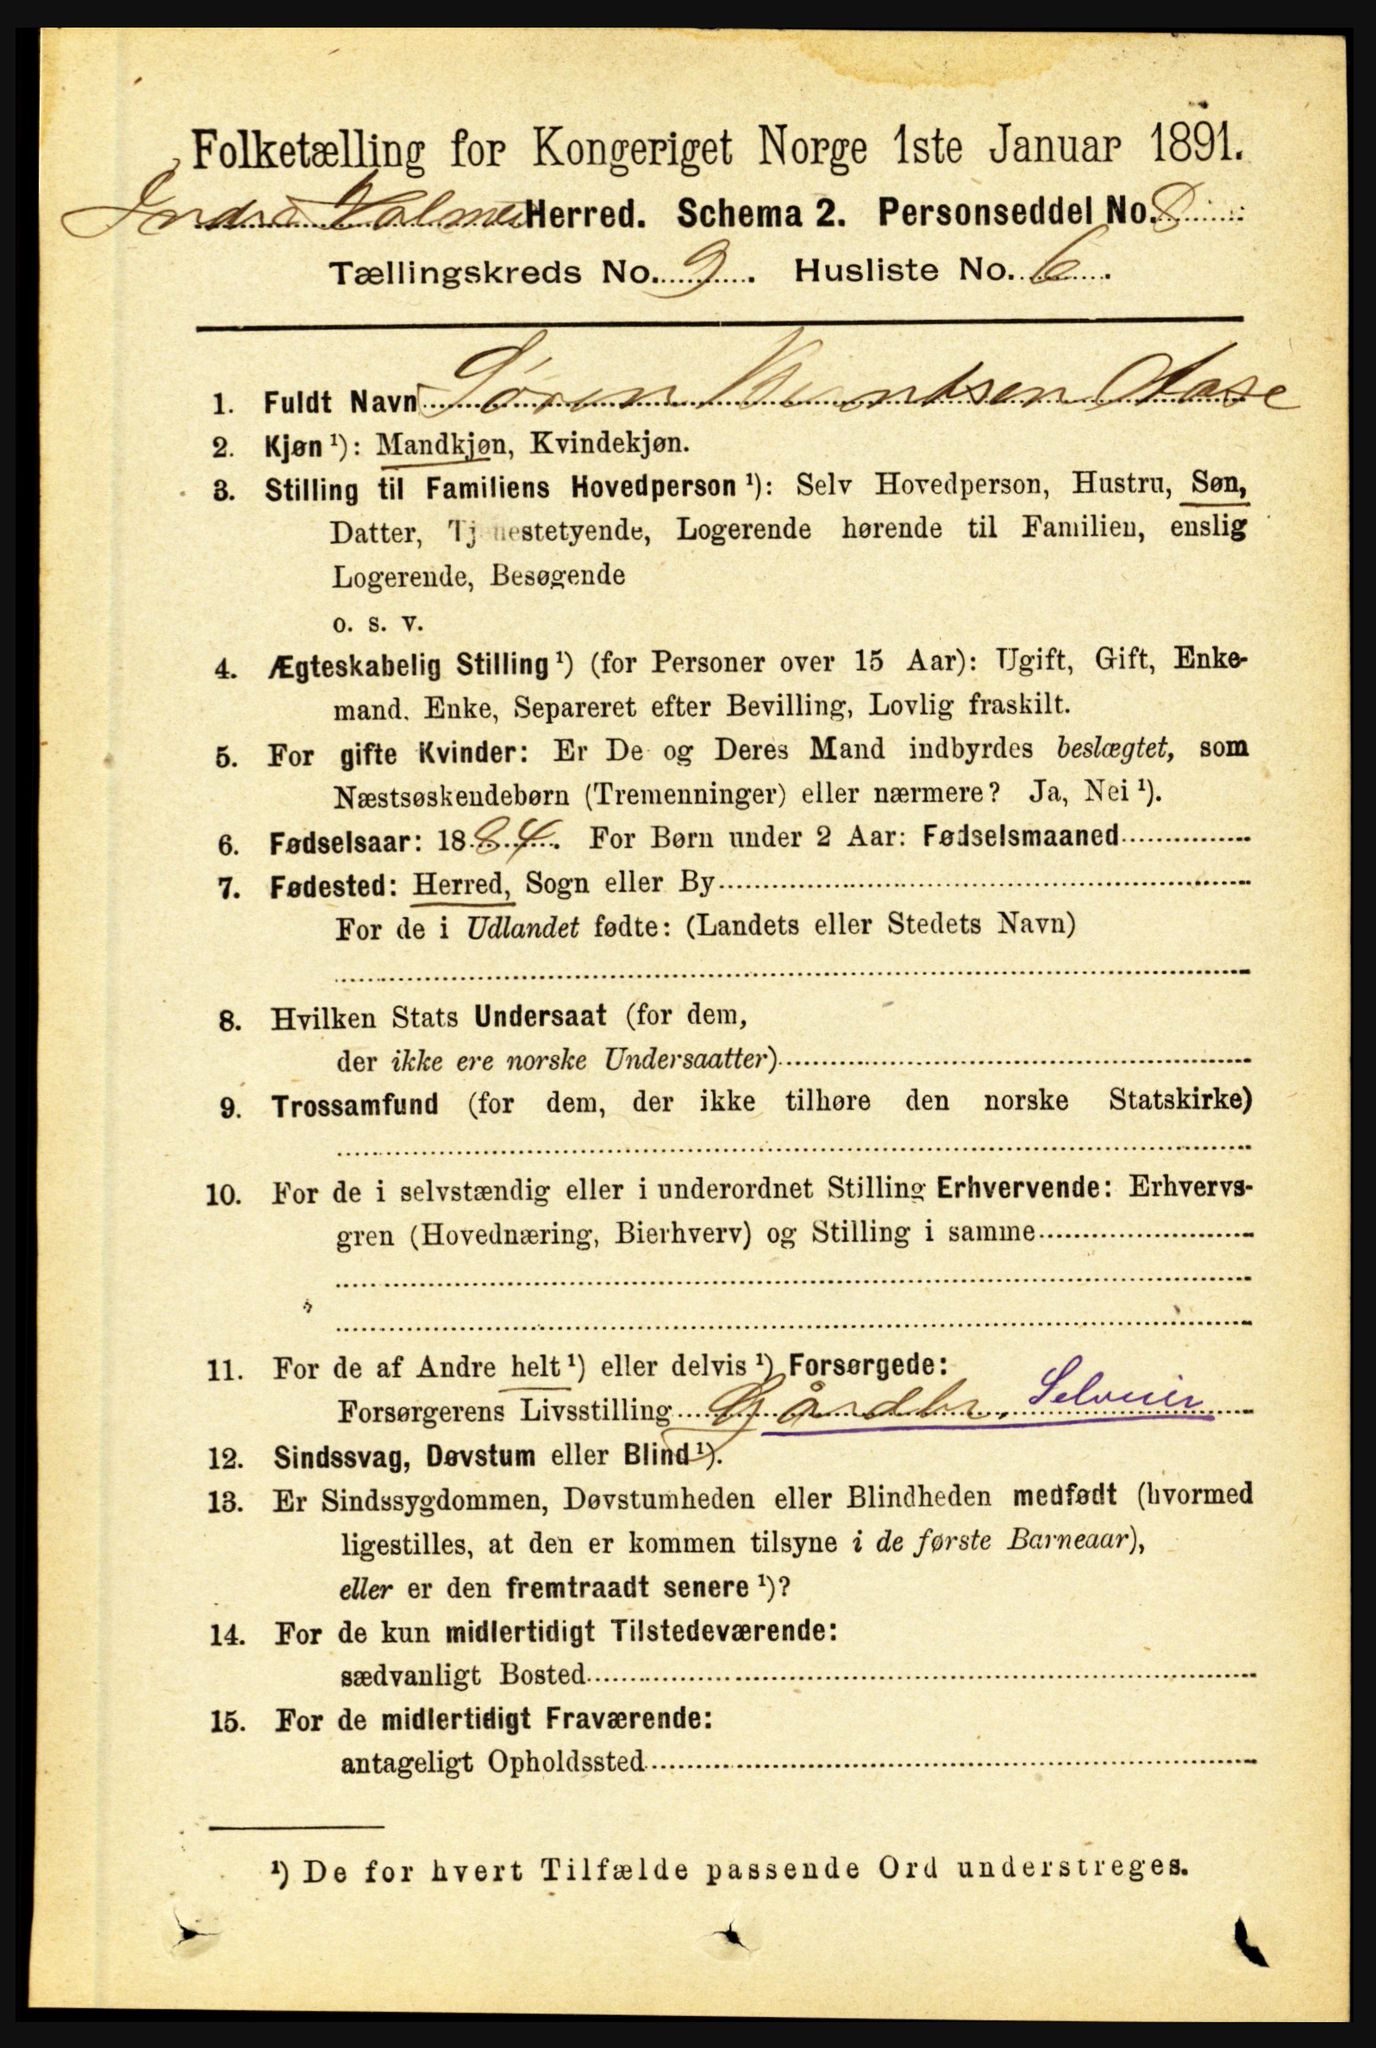 Folketælling for Kongeriget Norge 1ste Januar 1891.
Indre Holmedal Herred. Schema 2. Personseddel No. 8
Tællingskreds No. 9. Husliste No. 6.
1. Fuldt Navn Søren Berntsen Aase
2. Kjøn ¹): Mandkjøn, Kvindekjøn.
3. Stilling til Familiens Hovedperson ¹): Selv Hovedperson, Hustru, Søn,
Datter, Tjenestetyende, Logerende hørende til Familien, enslig
Logerende, Besøgende
o. s. v.
4. Ægteskabelig Stilling ¹) (for Personer over 15 Aar): Ugift, Gift, Enke-
mand. Enke, Separeret efter Bevilling, Lovlig fraskilt.
5. For gifte Kvinder: Er De og Deres Mand indbyrdes beslægtet, som
Næstsøskendebørn (Tremenninger) eller nærmere? Ja, Nei ¹).
6. Fødselsaar: 1884. For Børn under 2 Aar: Fødselsmaaned
7. Fødested: Herred, Sogn eller By
For de i Udlandet fødte: (Landets eller Stedets Navn)
8. Hvilken Stats Undersaat (for dem,
der ikke ere norske Undersaatter)
9. Trossamfund (for dem, der ikke tilhøre den norske Statskirke)
10. For de i selvstændig eller i underordnet Stilling Erhvervende: Erhvervs-
gren (Hovednæring, Bierhverv) og Stilling i samme
11. For de af Andre helt ¹) eller delvis ¹) Forsørgede:
Forsørgerens Livsstilling Gårdbr. Selveier
12. Sindssvag, Døvstum eller Blind ¹).
13. Er Sindssygdommen, Døvstumheden eller Blindheden medfødt (hvormed
ligestilles, at den er kommen tilsyne i de første Barneaar),
eller er den fremtraadt senere ¹)?
14. For de kun midlertidigt Tilstedeværende:
sædvanligt Bosted
15. For de midlertidigt Fraværende:
antageligt Opholdssted
¹) De for hvert Tilfælde passende Ord understreges.